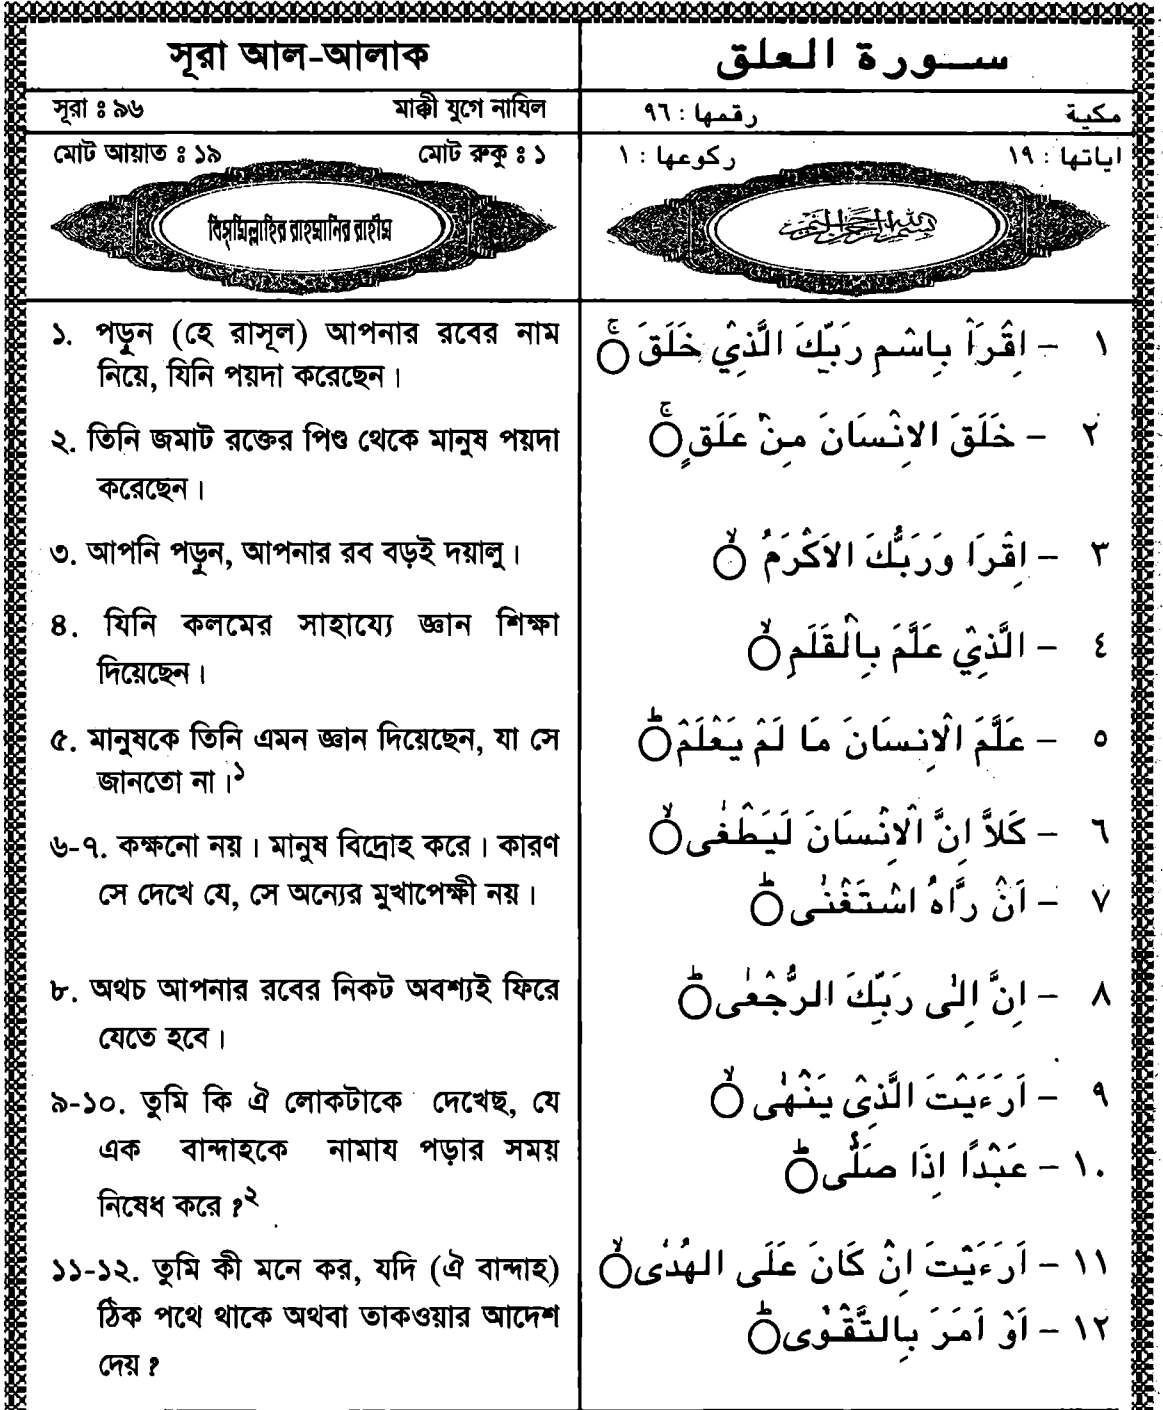 সূরা আল-আলাক
সূরা ঃ ৯৬ মাক্কী যুগে নাযিল
মোট আয়াত ঃ ১৯ মোট রুকু ঃ ১
বিসমিল্লাহির রাহমানির রাহীম
১. পড়ুন (হে রাসূল) আপনার রবের নাম
নিয়ে, যিনি পয়দা করেছেন।
২. তিনি জমাট রক্তের পিণ্ড থেকে মানুষ পয়দা
করেছেন।
৩. আপনি পড়ুন, আপনার রব বড়ই দয়ালু।
৪. যিনি কলমের সাহায্যে জ্ঞান শিক্ষা
দিয়েছেন।
৫. মানুষকে তিনি এমন জ্ঞান দিয়েছেন, যা সে
জানতো না।১
৬-৭. কক্ষনো নয়। মানুষ বিদ্রোহ করে। কারণ
সে দেখে যে, সে অন্যের মুখাপেক্ষী নয়।
৮. অথচ আপনার রবের নিকট অবশ্যই ফিরে
যেতে হবে।
৯-১০. তুমি কি ঐ লোকটাকে দেখেছ, যে
এক বান্দাহকে নামায পড়ার সময়
নিষেধ করে ?২
১১-১২. তুমি কী মনে কর, যদি (ঐ বান্দাহ)
ঠিক পথে থাকে অথবা তাকওয়ার আদেশ
দেয় ?
ســورة الـعلق
مكية رقمها : ٩٦
اياتها : ١٩ ركوعها : ١
بسم الله الرحمن الرحيم
١ – اِقْرَاْ بِاسْمِ رَبِّكَ الَّذِيْ خَلَقَ ۚ
٢ – خَلَقَ الاِنْسَانَ مِنْ عَلَقٍ ۚ
٣ – اِقْرَا وَرَبُّكَ الاَكْرَمُ ۙ
٤ – الَّذِيْ عَلَّمَ بِالْقَلَمِ ۙ
٥ – عَلَّمَ الْاِنسَانَ مَا لَمْ يَعْلَمْ ؕ
٦ – كَلاَّ اِنَّ الْاِنْسَانَ لَيَطْغٰى ۙ
٧ – اَنْ رَّاٰهُ اسْتَغْنٰى ؕ
٨ – اِنَّ اِلٰى رَبِّكَ الرُّجْعٰى ؕ
٩ – اَرَءَيْتَ الَّذِىْ يَنْهٰى ۙ
١٠ – عَبْدًا اِذَا صَلّٰى ؕ
١١ – اَرَءَيْتَ اِنْ كَانَ عَلَى الهُدٰى ۙ
١٢ – اَوْ اَمَرَ بِالتَّقْوٰى ؕ